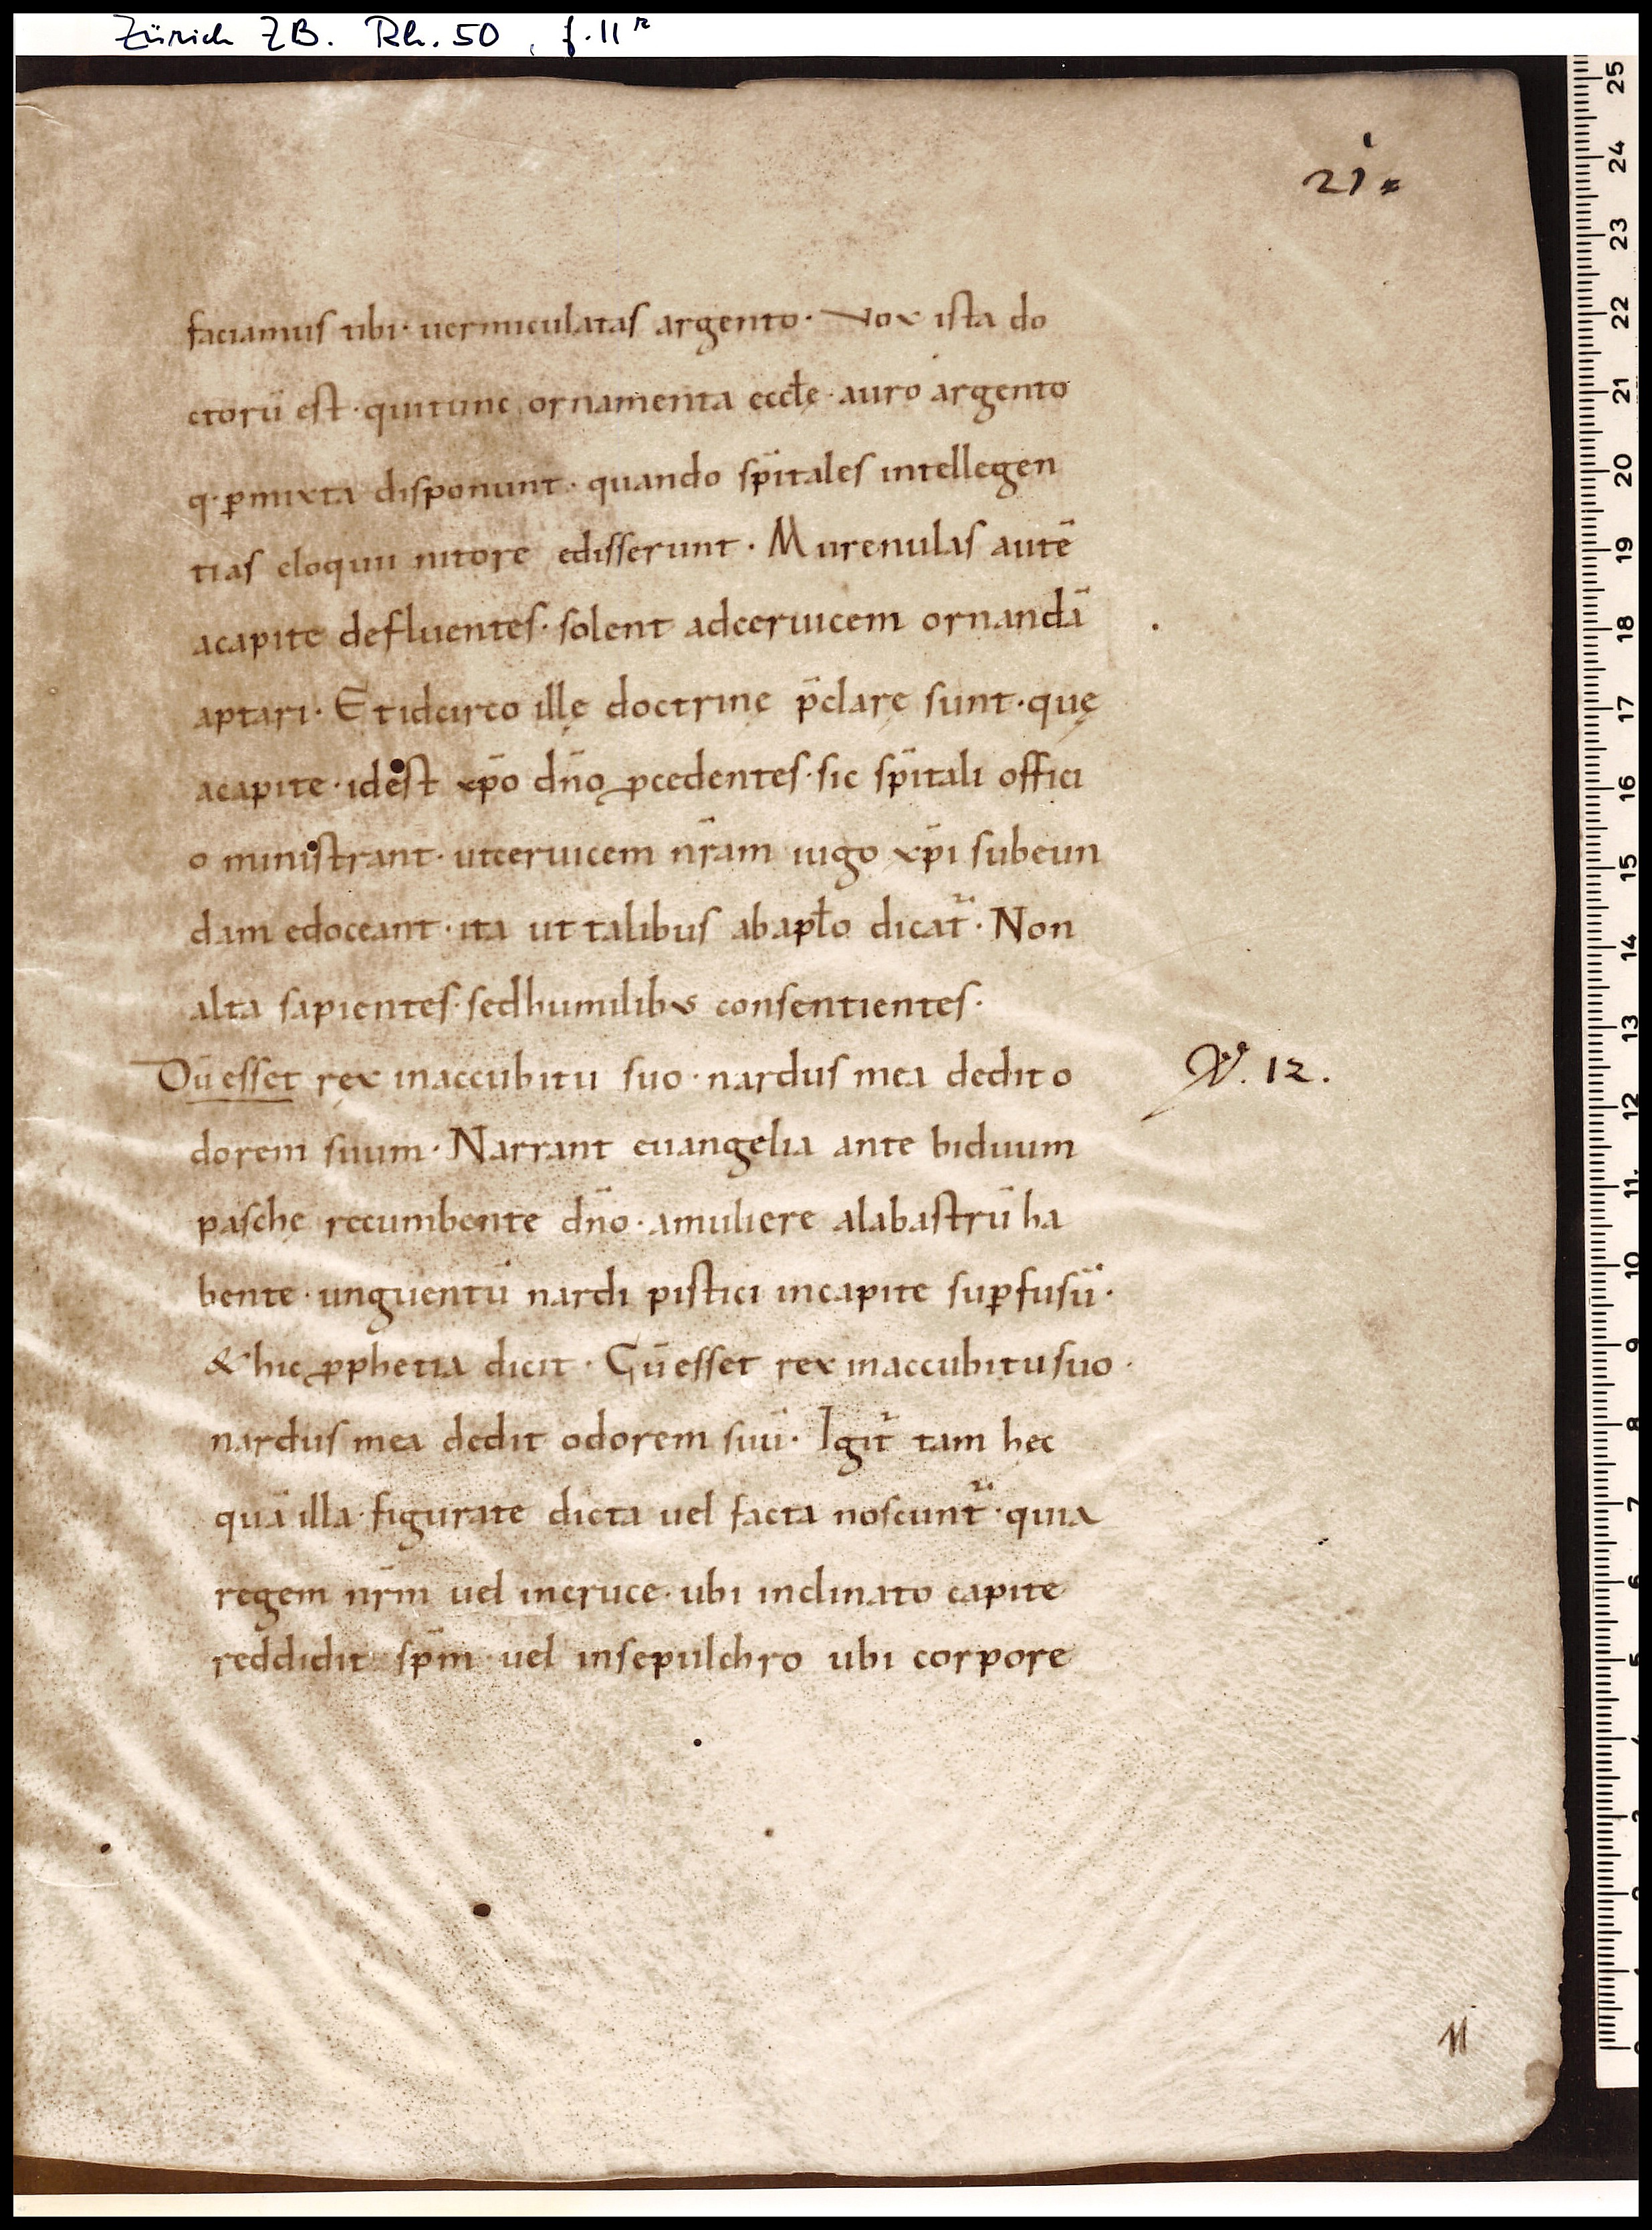 Zürich ZB. Rh. 50, f. 11r
21
faciamus tibi· uermiculatas argento· Vox ista do
ctorū est· qui tunc ornamenta eccłę· auro argento
q· p̄mixta disponunt· quando sp̄itales intellegen
tias eloquii nitore edisserunt· Murenulas autē
acapite defluentes· solent adceruicem ornandā
aptari· Et idcirco illę doctrinę p̄clarę sunt· quę
acapite· idest xp̄o dn̄o ꝓcedentes· sic sp̄itali offici
o ministrant· utceruicem nr̄am iugo xp̄i subeun
dam edoceant· ita ut talibus abapło dicat᷑· Non
alta sapientes· sedhumilibus consentientes·
Dū esset rex inaccubitu suo· nardus mea dedit o
dorem suum· Narrant euangelia ante biduum
paschę recumbente dn̄o· amuliere alabastrū ha
bente· unguentū nardi pistici incapite suꝑfusū·
& hic ꝓphetia dicit· Cū esset rex inaccubitu suo·
nardus mea dedit odorem suū· Igit᷑ tam hęc
quā illa· figurate dicta uel facta noscunt᷑· quia
regem nr̄m uel incruce· ubi inclinato capite
reddidit sp̄m· uel insepulchro ubi corpore
V. 12.
11
25
24
23
22
21
20
19
18
17
16
15
14
13
12
11
10
9
8
7
6
5
4
3
2
1
0